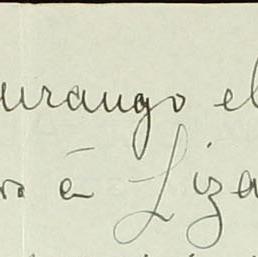 urango el
ro á Liza